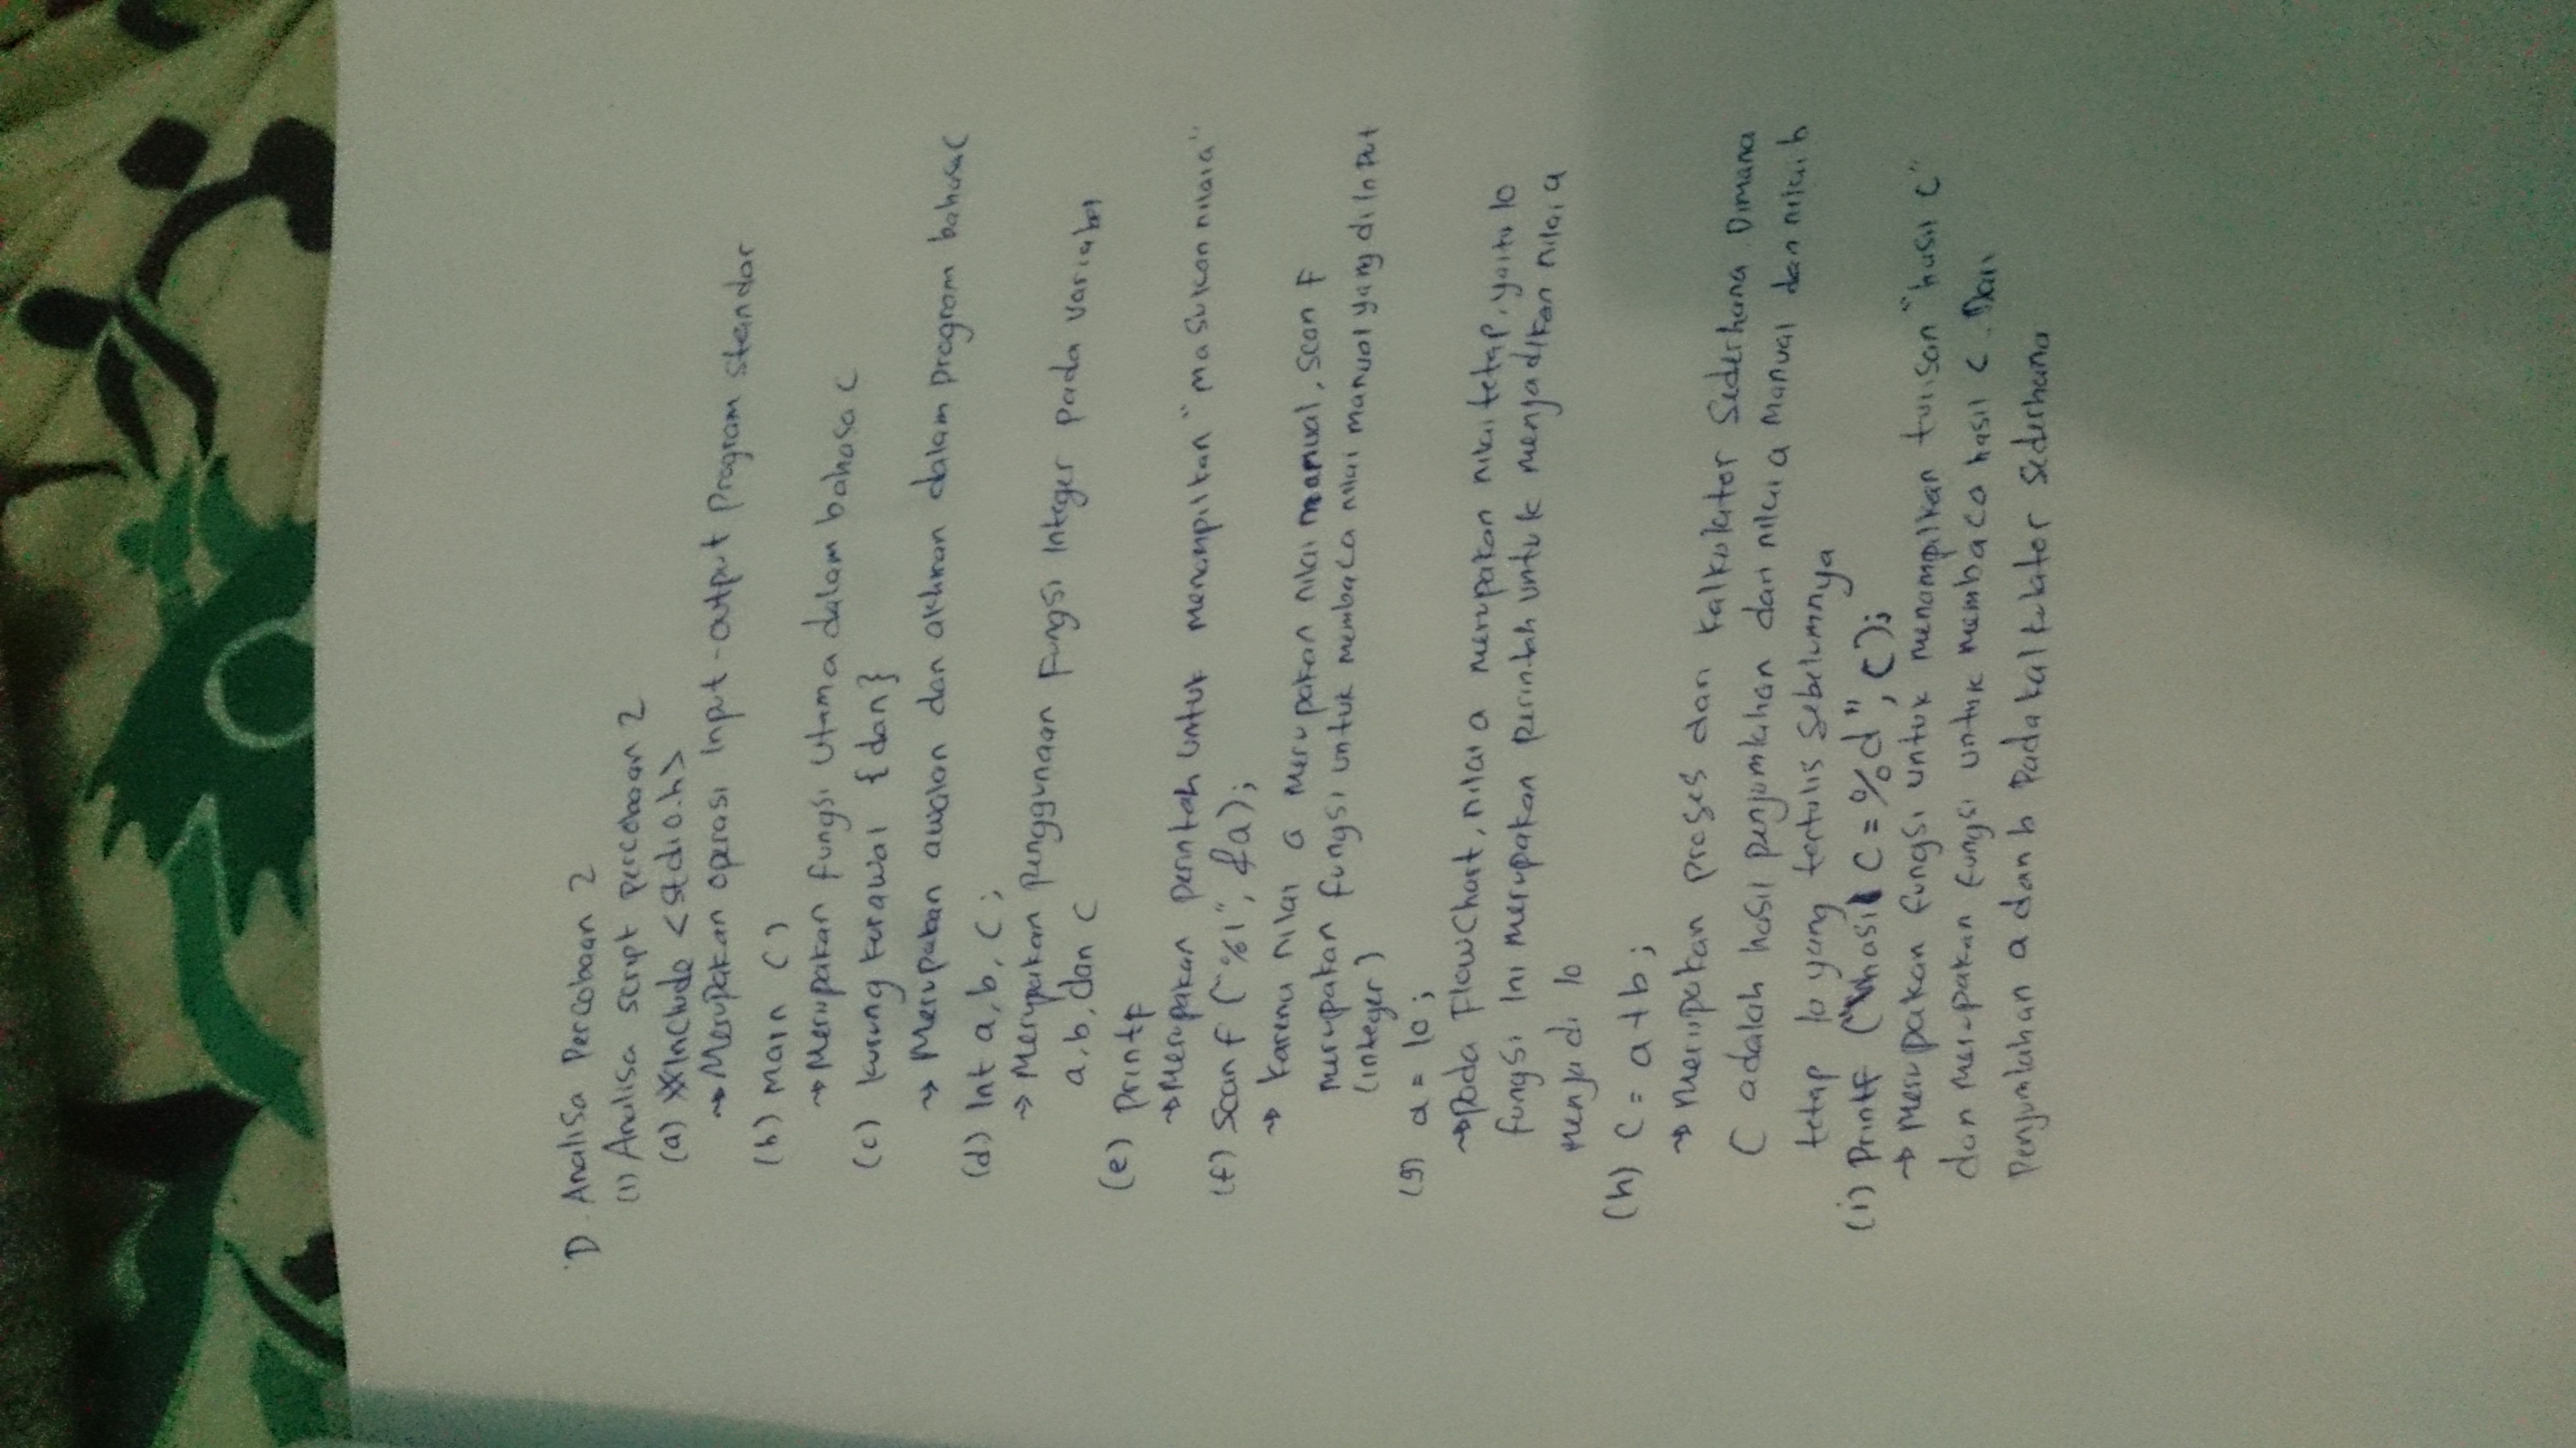 D. Analisa Percobaan 2
(1) Analisa script percobaan 2
(a) #include <stdio.h>
→ Merupakan operasi Input-output program standar
(b) main ()
→ Merupakan fungsi utama dalam bahasa C
(c) kurung kurawal {dan}
→ Merupakan awalan dan akhiran dalam program bahasa C
(d) Int a, b, c;
→ Merupakan penggunaan Fungsi Integer pada variabel
a, b, dan c
(e) printf
→ Merupakan perintah untuk menampilkan "masukan nilai a"
(f) scanf ("%i", &a);
→ karena nilai a merupakan nilai manual, scanf
merupakan fungsi untuk membaca nilai manual yang di input
(integer)
(g) a = 10;
→ pada FlowChart, nilai a merupakan nilai tetap, yaitu 10
fungsi Ini merupakan perintah untuk menjadikan nilai a
menjadi 10
(h) C = a+b;
→ merupakan proses dari kalkulator sederhana. Dimana
C adalah hasil penjumlahan dari nilai a manual dan nilai b
tetap 10 yang tertulis sebelumnya
(i) Printf ("\nhasil C = %d", c);
→ merupakan fungsi untuk menampilkan tulisan "hasil c"
dan merupakan fungsi untuk membaca hasil c. Dari
Penjumlahan a dan b Pada kalkulator sederhana